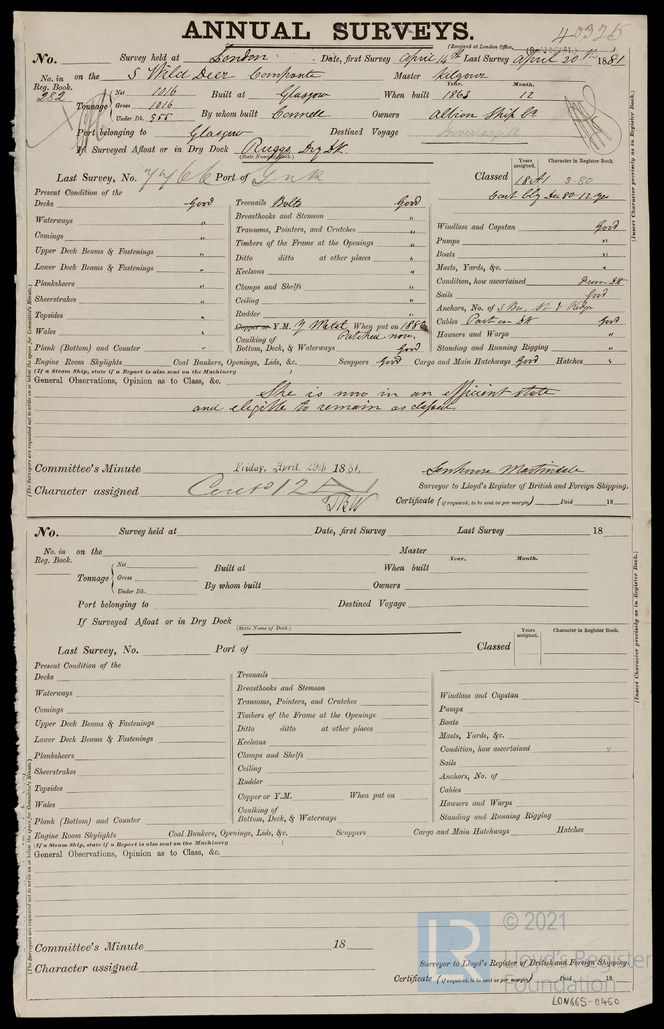 ANNUAL SURVEYS.
40325
(Received at London Office,
No. Survey held at London Date, first Survey April 14th Last Survey April 20th 1881
No. in Reg. Book. 282 on the S Wild Deer Composite Master Kilgour
Tonnage Net 1016 Gross 1016 Under Dk. 955 Built at Glasgow When built Year. 1863 Month. 12
By whom built Connell Owners Albion Ship Co
Port belonging to Glasgow Destined Voyage
If Surveyed Afloat or in Dry Dock Dry Dk.
(State Name of Dock.)
Last Survey, No. 7766 Port of Classed Years assigned. 18A1 Character in Register Book. 3.80
Present Condition of the
Decks Good
Waterways "
Comings "
Upper Deck Beams & Fastenings "
Lower Deck Beams & Fastenings "
Planksheers "
Sheerstrakes "
Topsides "
Wales "
Plank (Bottom) and Counter "
Treenails Bolts Good
Breasthooks and Stemson "
Transoms, Pointers, and Crutches "
Timbers of the Frame at the Openings "
Ditto ditto at other places "
Keelsons "
Clamps and Shelfs "
Ceiling "
Rudder "
Copper or Y.M. Y Metal When put on 1880
Patched now.
Caulking of Bottom, Deck, & Waterways Good
Windlass and Capstan Good
Pumps "
Boats "
Masts, Yards, &c. "
Condition, how ascertained From Dk
Sails Good
Anchors, No. of 3 Bw. St. & Kedge
Cables Part on Dk Good
Hawsers and Warps "
Standing and Running Rigging "
Engine Room Skylights Coal Bunkers, Openings, Lids, &c. Scuppers Good Cargo and Main Hatchways Good Hatches "
(If a Steam Ship, state if a Report is also sent on the Machinery )
General Observations, Opinion as to Class, &c.
She is now in an efficient state
and eligible to remain as classed.
Committee's Minute Friday, April, 29th 1881.
Martindale
Surveyor to Lloyd's Register of British and Foreign Shipping.
Character assigned Contd 12 A1
Certificate (if required, to be sent as per margin) Paid 18
(The Surveyors are requested not to write on or below the space for Committee's Minute.)
(Insert Character precisely as in Register Book.)
No. Survey held at Date, first Survey Last Survey 18
No. in Reg. Book. on the Master
Tonnage Net Gross Under Dk. Built at When built Year. Month.
By whom built Owners
Port belonging to Destined Voyage
If Surveyed Afloat or in Dry Dock
(State Name of Dock.)
Last Survey, No. Port of Classed Years assigned. Character in Register Book.
Present Condition of the
Decks
Waterways
Comings
Upper Deck Beams & Fastenings
Lower Deck Beams & Fastenings
Planksheers
Sheerstrakes
Topsides
Wales
Plank (Bottom) and Counter
Treenails
Breasthooks and Stemson
Transoms, Pointers, and Crutches
Timbers of the Frame at the Openings
Ditto ditto at other places
Keelsons
Clamps and Shelfs
Ceiling
Rudder
Copper or Y.M. When put on
Caulking of Bottom, Deck, & Waterways
Windlass and Capstan
Pumps
Boats
Masts, Yards, &c.
Condition, how ascertained
Sails
Anchors, No. of
Cables
Hawsers and Warps
Standing and Running Rigging
Engine Room Skylights Coal Bunkers, Openings, Lids, &c. Scuppers Cargo and Main Hatchways Hatches
(If a Steam Ship, state if a Report is also sent on the Machinery )
General Observations, Opinion as to Class, &c.
Committee's Minute 18
Character assigned
Surveyor to Lloyd's Register of British and Foreign Shipping.
Certificate (if required, to be sent as per margin) Paid 18
(The Surveyors are requested not to write on or below the space for Committee's Minute.)
(Insert Character precisely as in Register Book.)
LR © 2021
Lloyd's Register
Foundation
LON665-0460